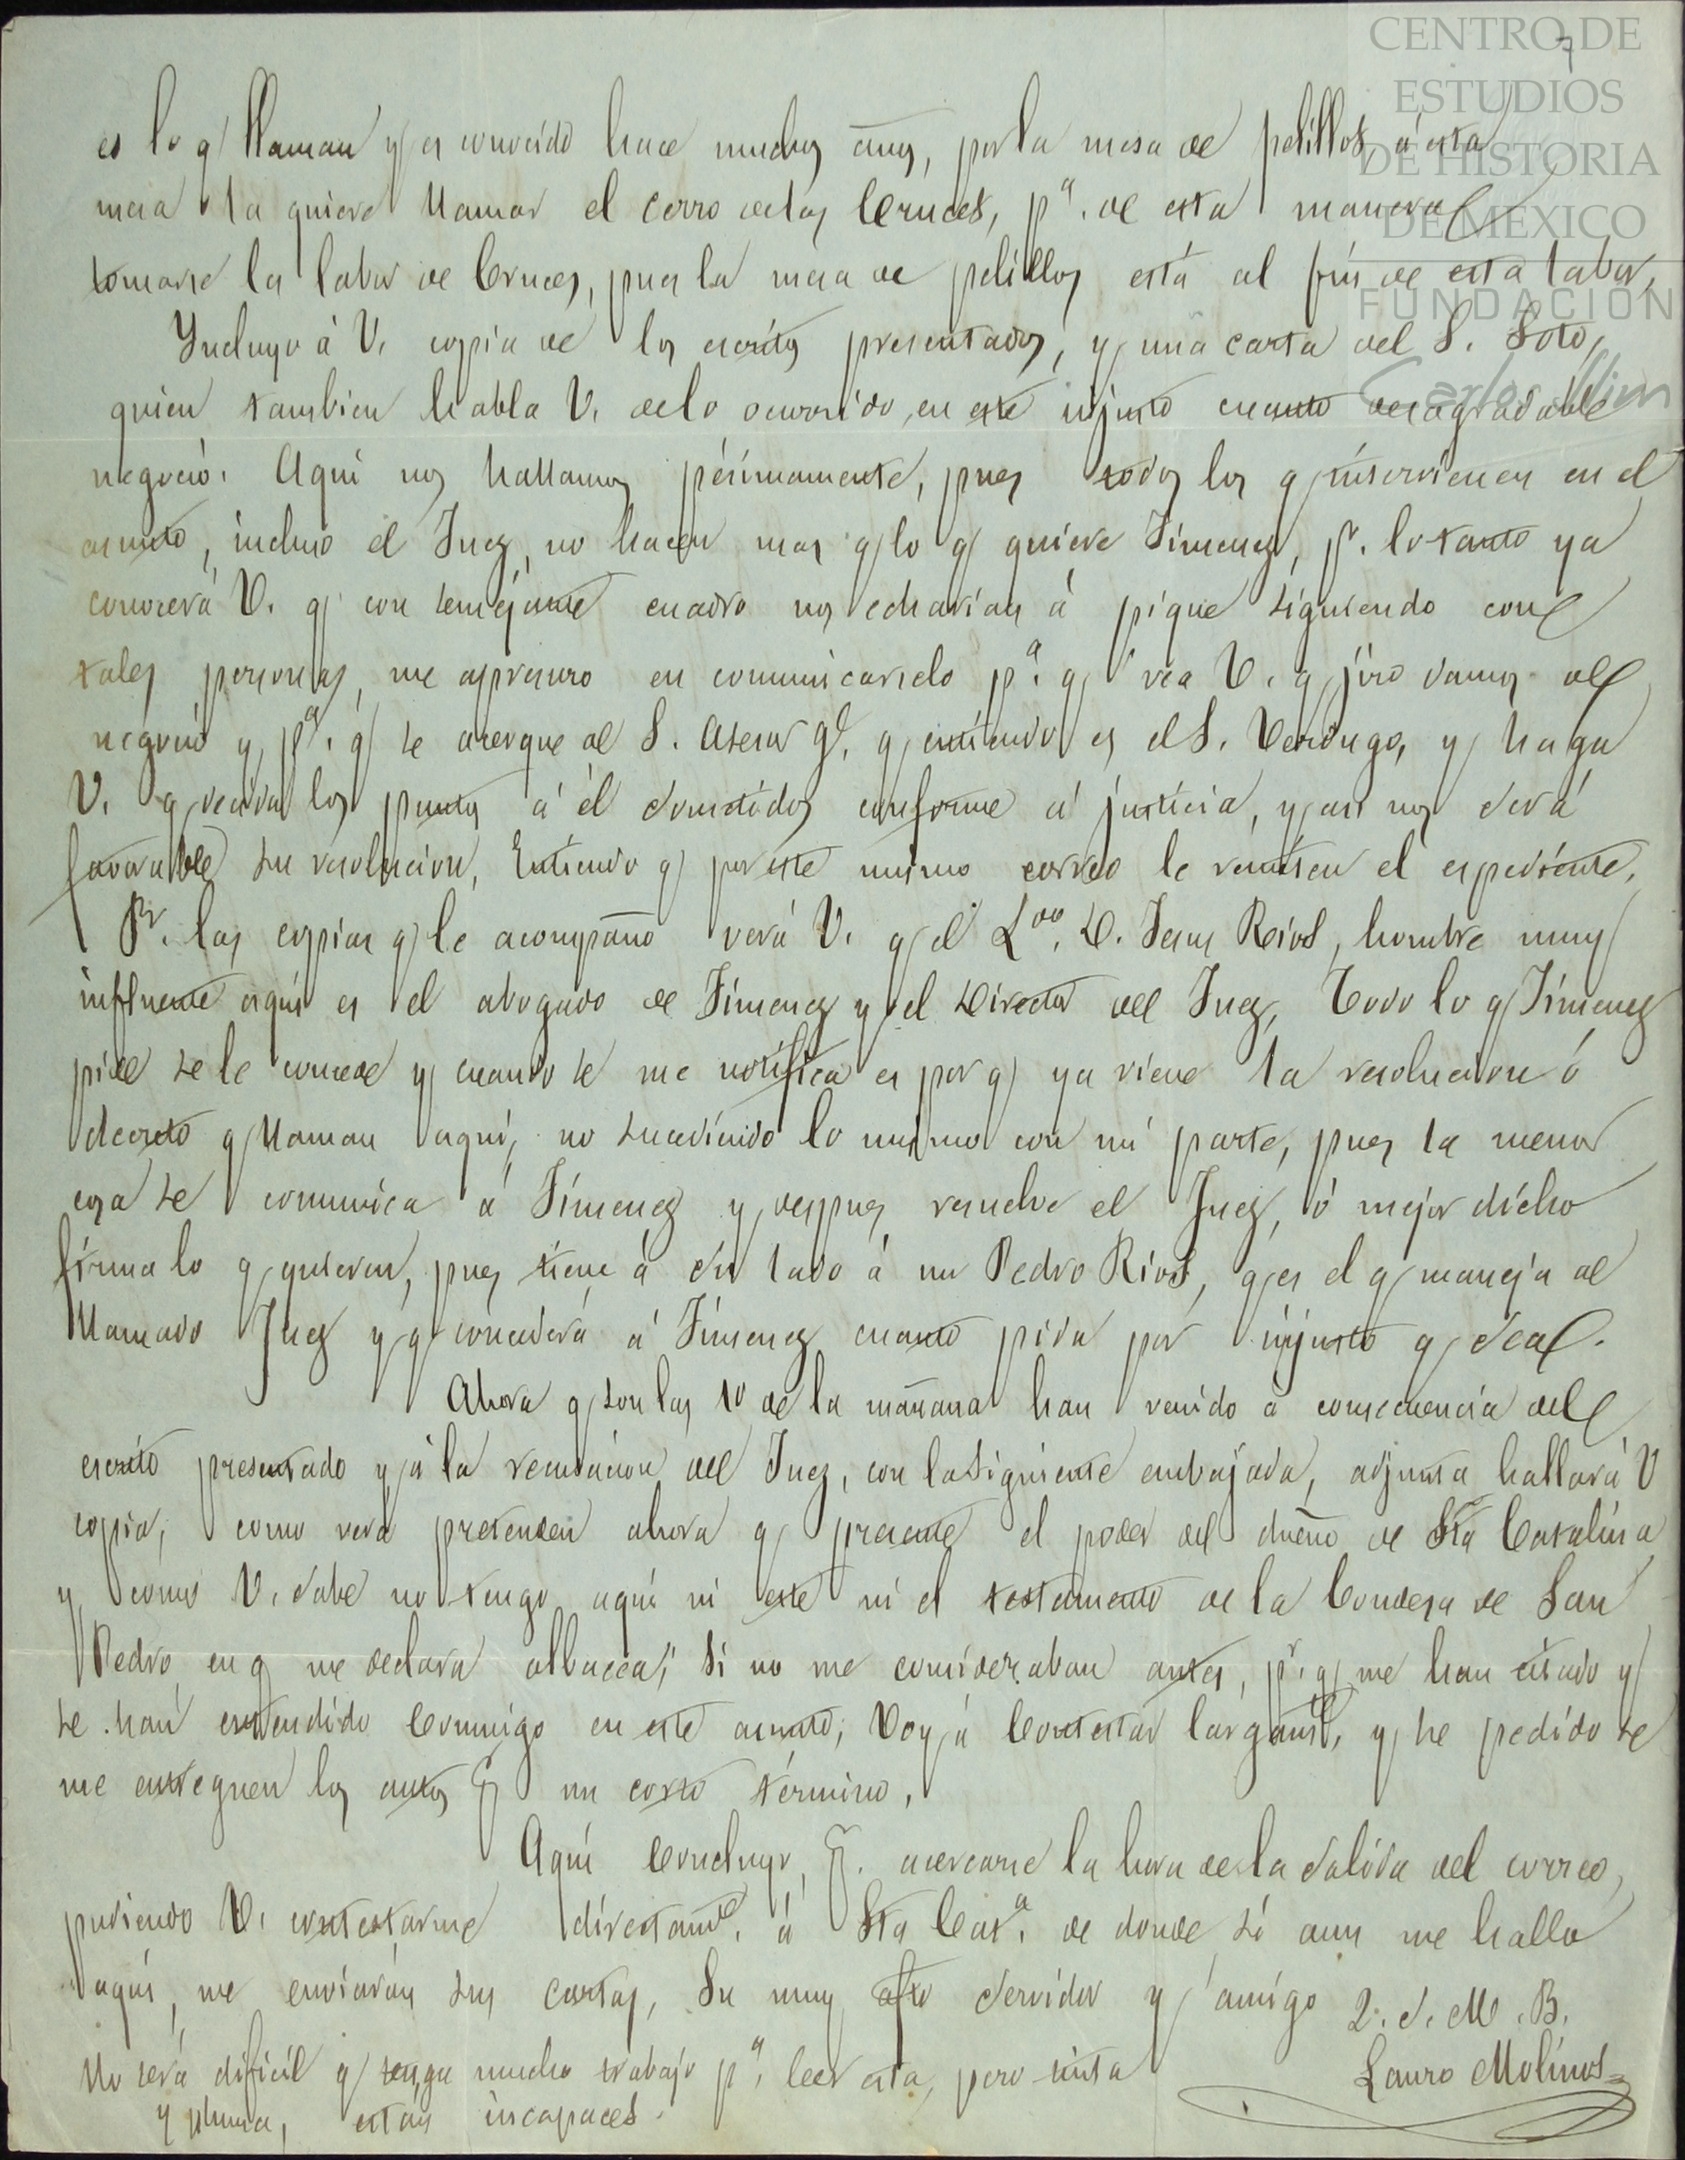 CENTRO DE
ESTUDIOS
DE HISTORIA
DE MÉXICO
FUNDACIÓN
Carlos Slim
7
es lo q llaman y es conocido hace muchos años, por la mesa de pelillos, á esta
mesa la quiere llamar el cerro de las Cruces, pª. de esta manera
tomarse la labor de Cruces, pues la mesa de pelillos está al fin de esta labor,
Yncluyo á V. copia de los escritos presentados, y una carta del S. Soto,
quien tambien habla V. de lo ocurrido en este injusto cuanto desagradable
negocio. Aqui nos hallamos pésimamente, pues todos los q intervienen en el
asunto, incluso el Juez, no hacen mas q lo q quiere Jimenez, pr. lo tanto ya
conocerá V. q con semejante cuadro nos echarian á pique siguiendo con
tales personas, me apresuro en comunicarselo pª. q vea V. q jiro damos al
negocio y pª. q se acerque al S. Asesor gl. q entiendo es el S. Verdugo, y haga
V. q decida los puntos á él sometidos conforme á justicia, y asi nos será
favorable su resolucion, Entiendo q por este mismo correo le remiten el espediente.
Pr. las copias q le acompaño verá V. q el Ldo. D. Jesus Rios, hombre muy
influente aquí es el abogado de Jimenez y el Director del Juez, Todo lo q Jimenez
pide se le concede y cuando se me notifica es por q ya viene la resolucion ó
decreto q llaman aquí, no sucediendo lo mismo con mi parte, pues la menor
cosa se comunica á Jimenez y despues resuelve el Juez, ó mejor dicho
firma lo q quieren, pues tiene á su lado á un Pedro Rios, q es el q maneja al
llamado Juez y q concederá á Jimenez cuanto pida por injusto q sea.
Ahora q son las 10 de la mañana han venido á consecuencia del
escrito presentado y á la recusacion del Juez, con la siguiente embajada, adjunta hallará V
copia, como verá pretenden ahora q presente el poder del dueño de Sta Catalina
y como V. sabe no tengo aquí ni este ni el testamento de la Condesa de San
Pedro en q me declara albacea; Si no me consideraban antes, pr. q me han citado y
se han entendido Conmigo en este asunto; Voy á Contestar largamte, y he pedido se
me entreguen los autos pr un corto término,
Aquí Concluyo, pr. acercarse la hora de la salida del correo,
pudiendo V. contestarme directamte. á Sta Catª. de donde si aun me hallo
aquí, me enviarán sus cartas, Su muy afto servidor y amigo Q. S. M. B.
Lauro Molinos
No será dificil q tenga mucho trabajo pª. leer esta, pero tinta
y pluma, están incapaces.